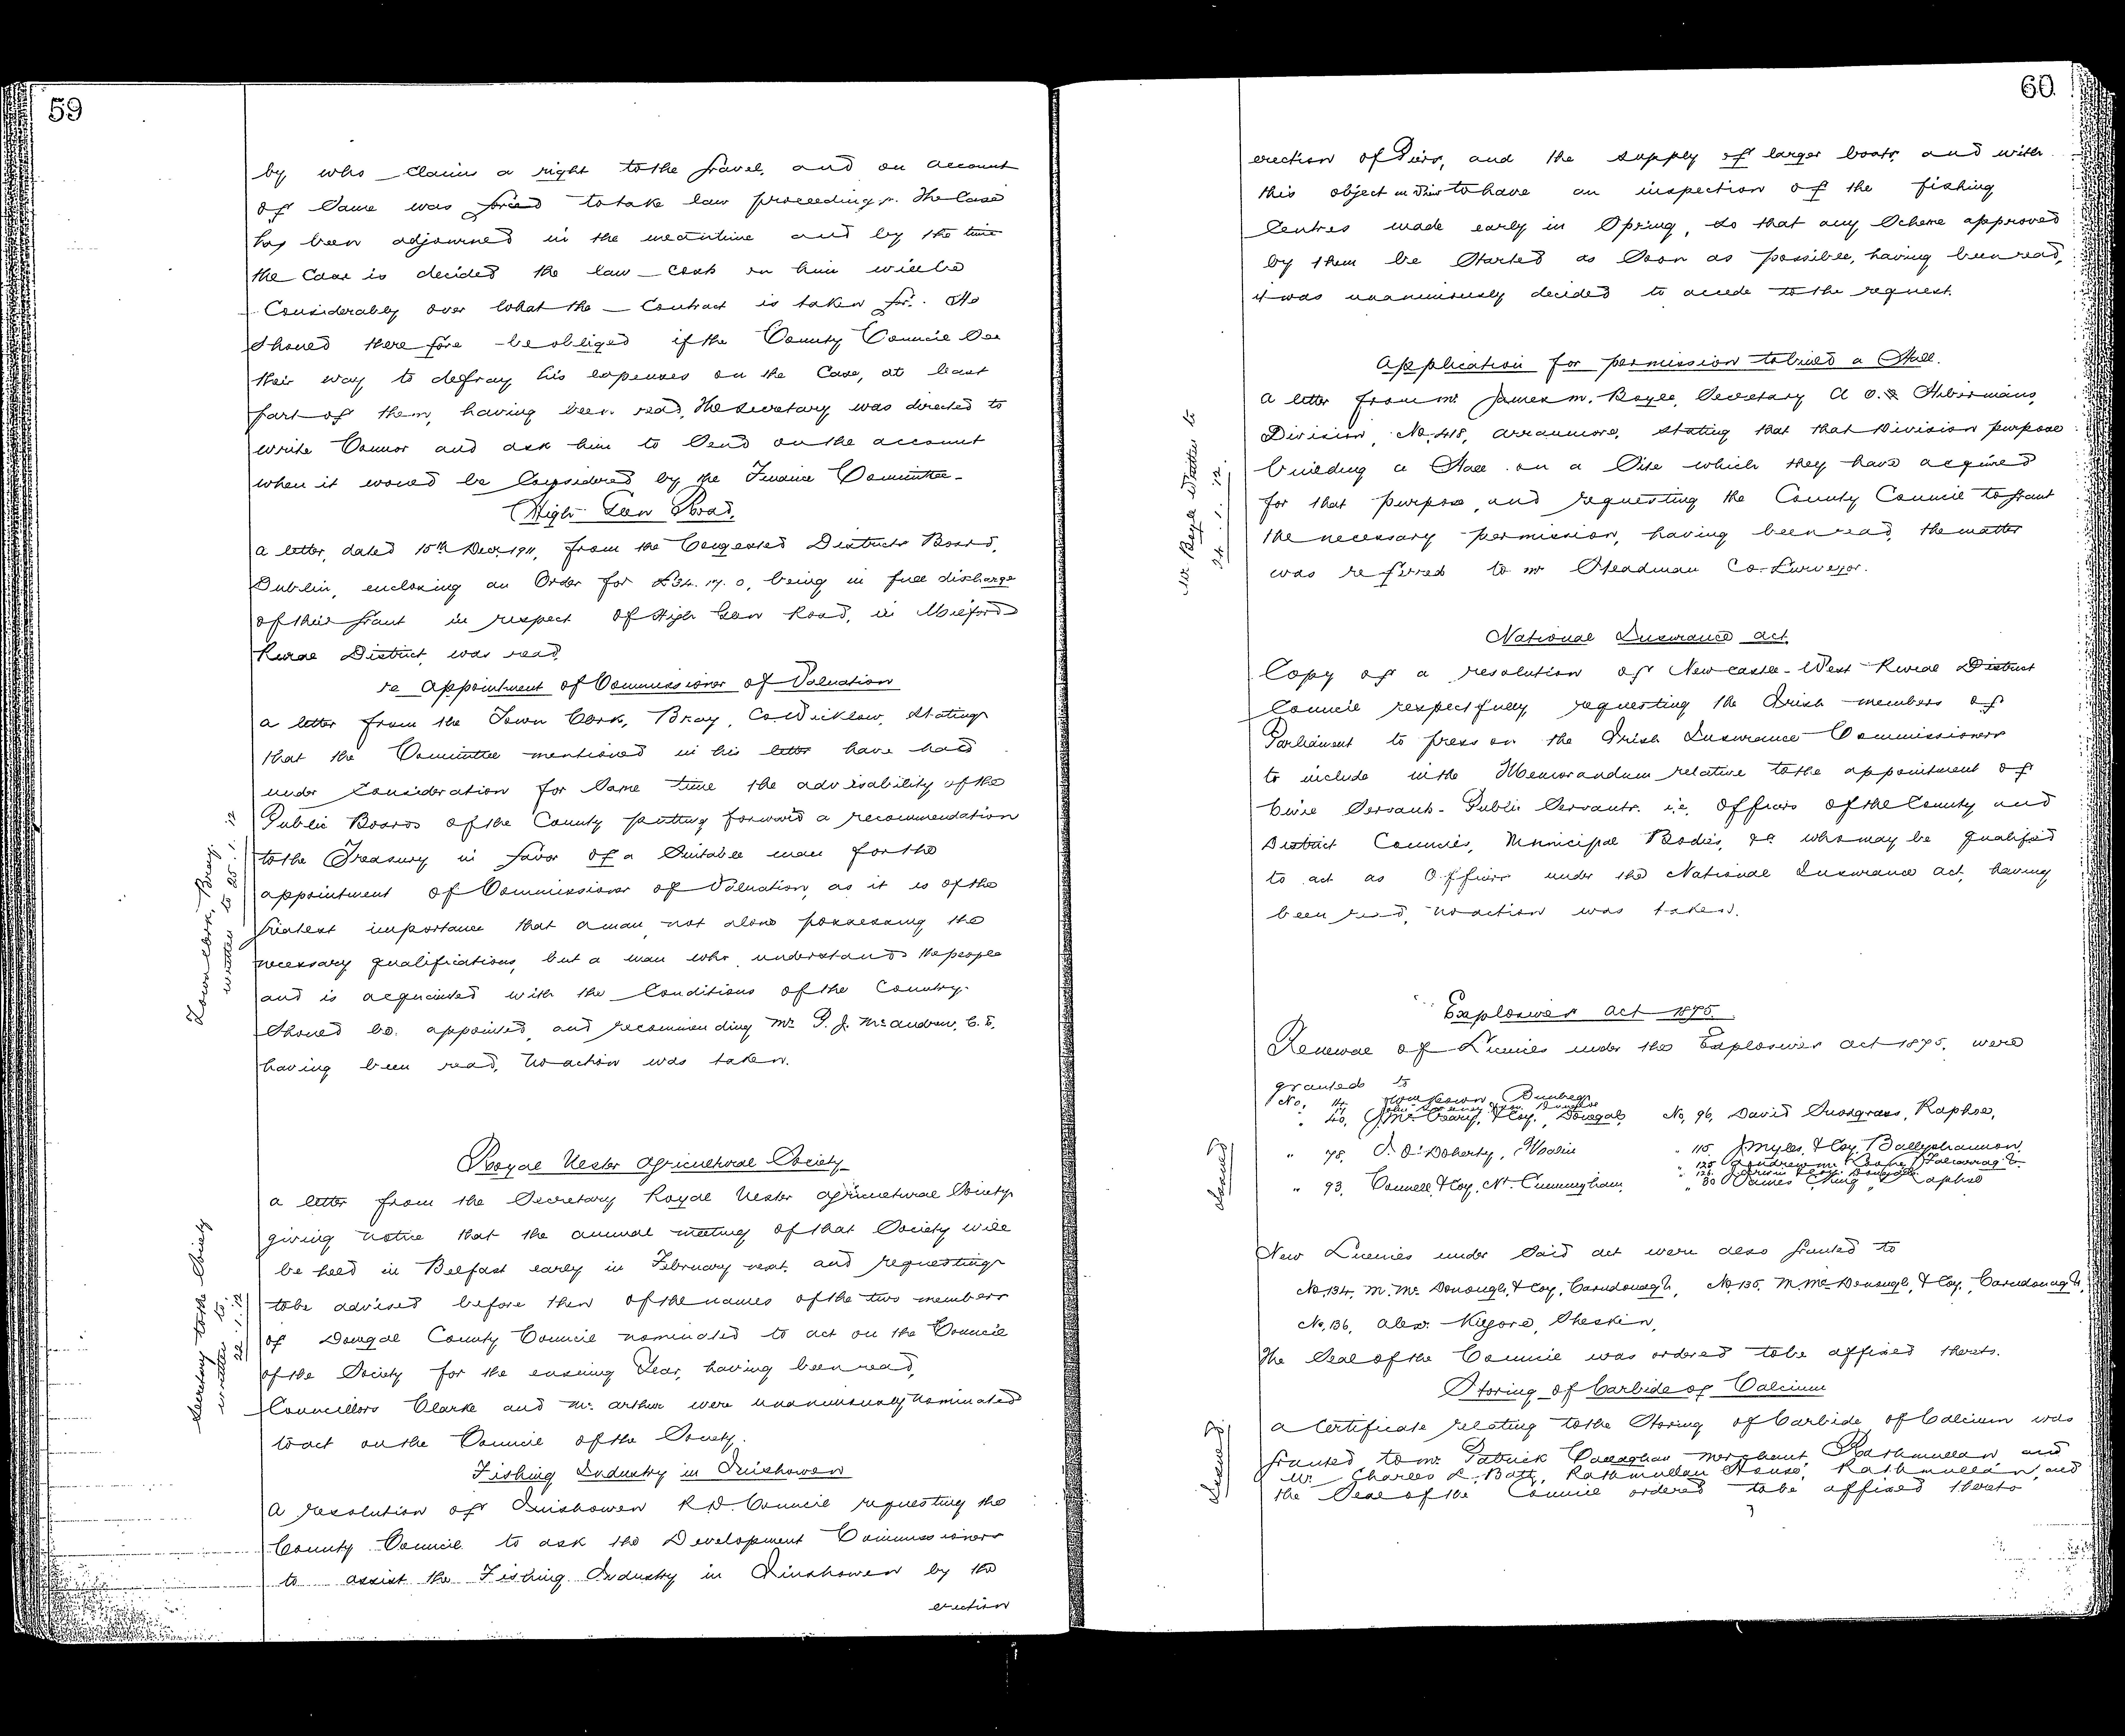 59
by who claims a right to the gravel, and on account
of same was forced to take law proceedings. The Case
has been adjourned in the meantime and by the time
the Case is decided the law costs on him will be
Considerably over what the Contract is taken for. He
should therefore be obliged if the County Council see
their way to defray his expenses on the Case, at least
part of them, having been read, the Secretary was directed to
write Connor and ask him to send on the account
when it would be Considered by the Finance Committee.
High Glen Road.
a letter, dated 15th Decr. 1911, from the Congested Districts Board,
Dublin, enclosing an Order for £34. 17. 0, being in full discharge
of their grant in respect of High Glen Road, in Milford
Rural District, was read.
re appointment of Commissioner of Valuation
Town Clerk, Bray.
written to 25.1.12
a letter from the Town Clerk, Bray, Co. Wicklow, stating
that the Committee mentioned in his letter have had
under Consideration for some time the advisability of the
Public Boards of the County putting forward a recommendation
to the Treasury in favor of a suitable man for the
appointment of Commissioner of Valuation, as it is of the
greatest importance that a man, not alone possessing the
necessary qualifications, but a man who understands the people
and is acquainted with the Conditions of the Country.
should be appointed, and recommending Mr. P. J. McAndrew, C.E.
having been read, no action was taken.
Royal Ulster Agricultural Society
Secretary to the Society
written to
22.1.12
a letter from the Secretary Royal Ulster Agricultural Society
giving notice that the annual meeting of that Society will
be held in Belfast early in February next, and requesting
to be advised before then of the names of the two members
of Donegal County Council nominated to act on the Council
of the Society for the ensuing Year, having been read,
Councillors Clarke and McArthur were unanimously nominated
to act on the Council of the Society.
Fishing Industry in Inishowen
A resolution of Inishowen R.D. Council requesting the
County Council to ask the Development Commissioners
to assist the Fishing Industry in Inishowen by the
erection
60
erection of Piers, and the supply of larger boats, and with
this object in view to have an inspection of the fishing
Centres made early in Spring, so that any Scheme approved
by them be started as soon as possible, having been read,
it was unanimously decided to accede to the request.
Application for permission to build a Hall.
Mr. Boyle written to
24.1.'12.
a letter from Mr James M. Boyle, Secretary A.O. Hibernians,
Division, No. 418, Arranmore, stating that that Division purpose
building a Hall on a Site which they have acquired
for that purpose, and requesting the County Council to grant
the necessary permission, having been read, the matter
was referred to Mr Steadman Co. Surveyor.
National Insurance Act.
Copy of a resolution of Newcastle-West Rural District
Council respectfully requesting the Irish members of
Parliament to press on the Irish Insurance Commissioners
to include in the Memorandum relative to the appointment of
Civil Servants - Public Servants. i.e. Officers of the County and
District Councils, Municipal Bodies, &c who may be qualified
to act as Officers under the National Insurance Act, having
been read, no action was taken.
Explosives Act 1875.
Renewal of Licences under the Explosives Act 1875, were
granted to
No. 14.
" 40, J. McCreary, & Coy., Donegal, No. 96, David Snodgrass, Raphoe,
Issued
" 78, O'Doherty, Malin " 115, J. Myles, & Coy, Ballyshannon,
" 93, Connell, & Coy, Nt. Cunningham, " 80 James King Raphoe
New Licences under said act were also granted to
No. 134, M. McDonough, & Coy, Carndonagh, No. 135, M. McDonough, & Coy, Carndonagh,
No. 136, Alex. Kilgore, Sheskin,
The Seal of the Council was ordered to be affixed thereto.
Storing of Carbide of Calcium
Issued
a Certificate relating to the Storing of Carbide of Calcium was
granted to Mr Patrick Callaghan Merchant, Rathmullan, and
Mr. Charles R. Batt, Rathmullan House, Rathmullan, and
the Seal of the Council ordered to be affixed thereto